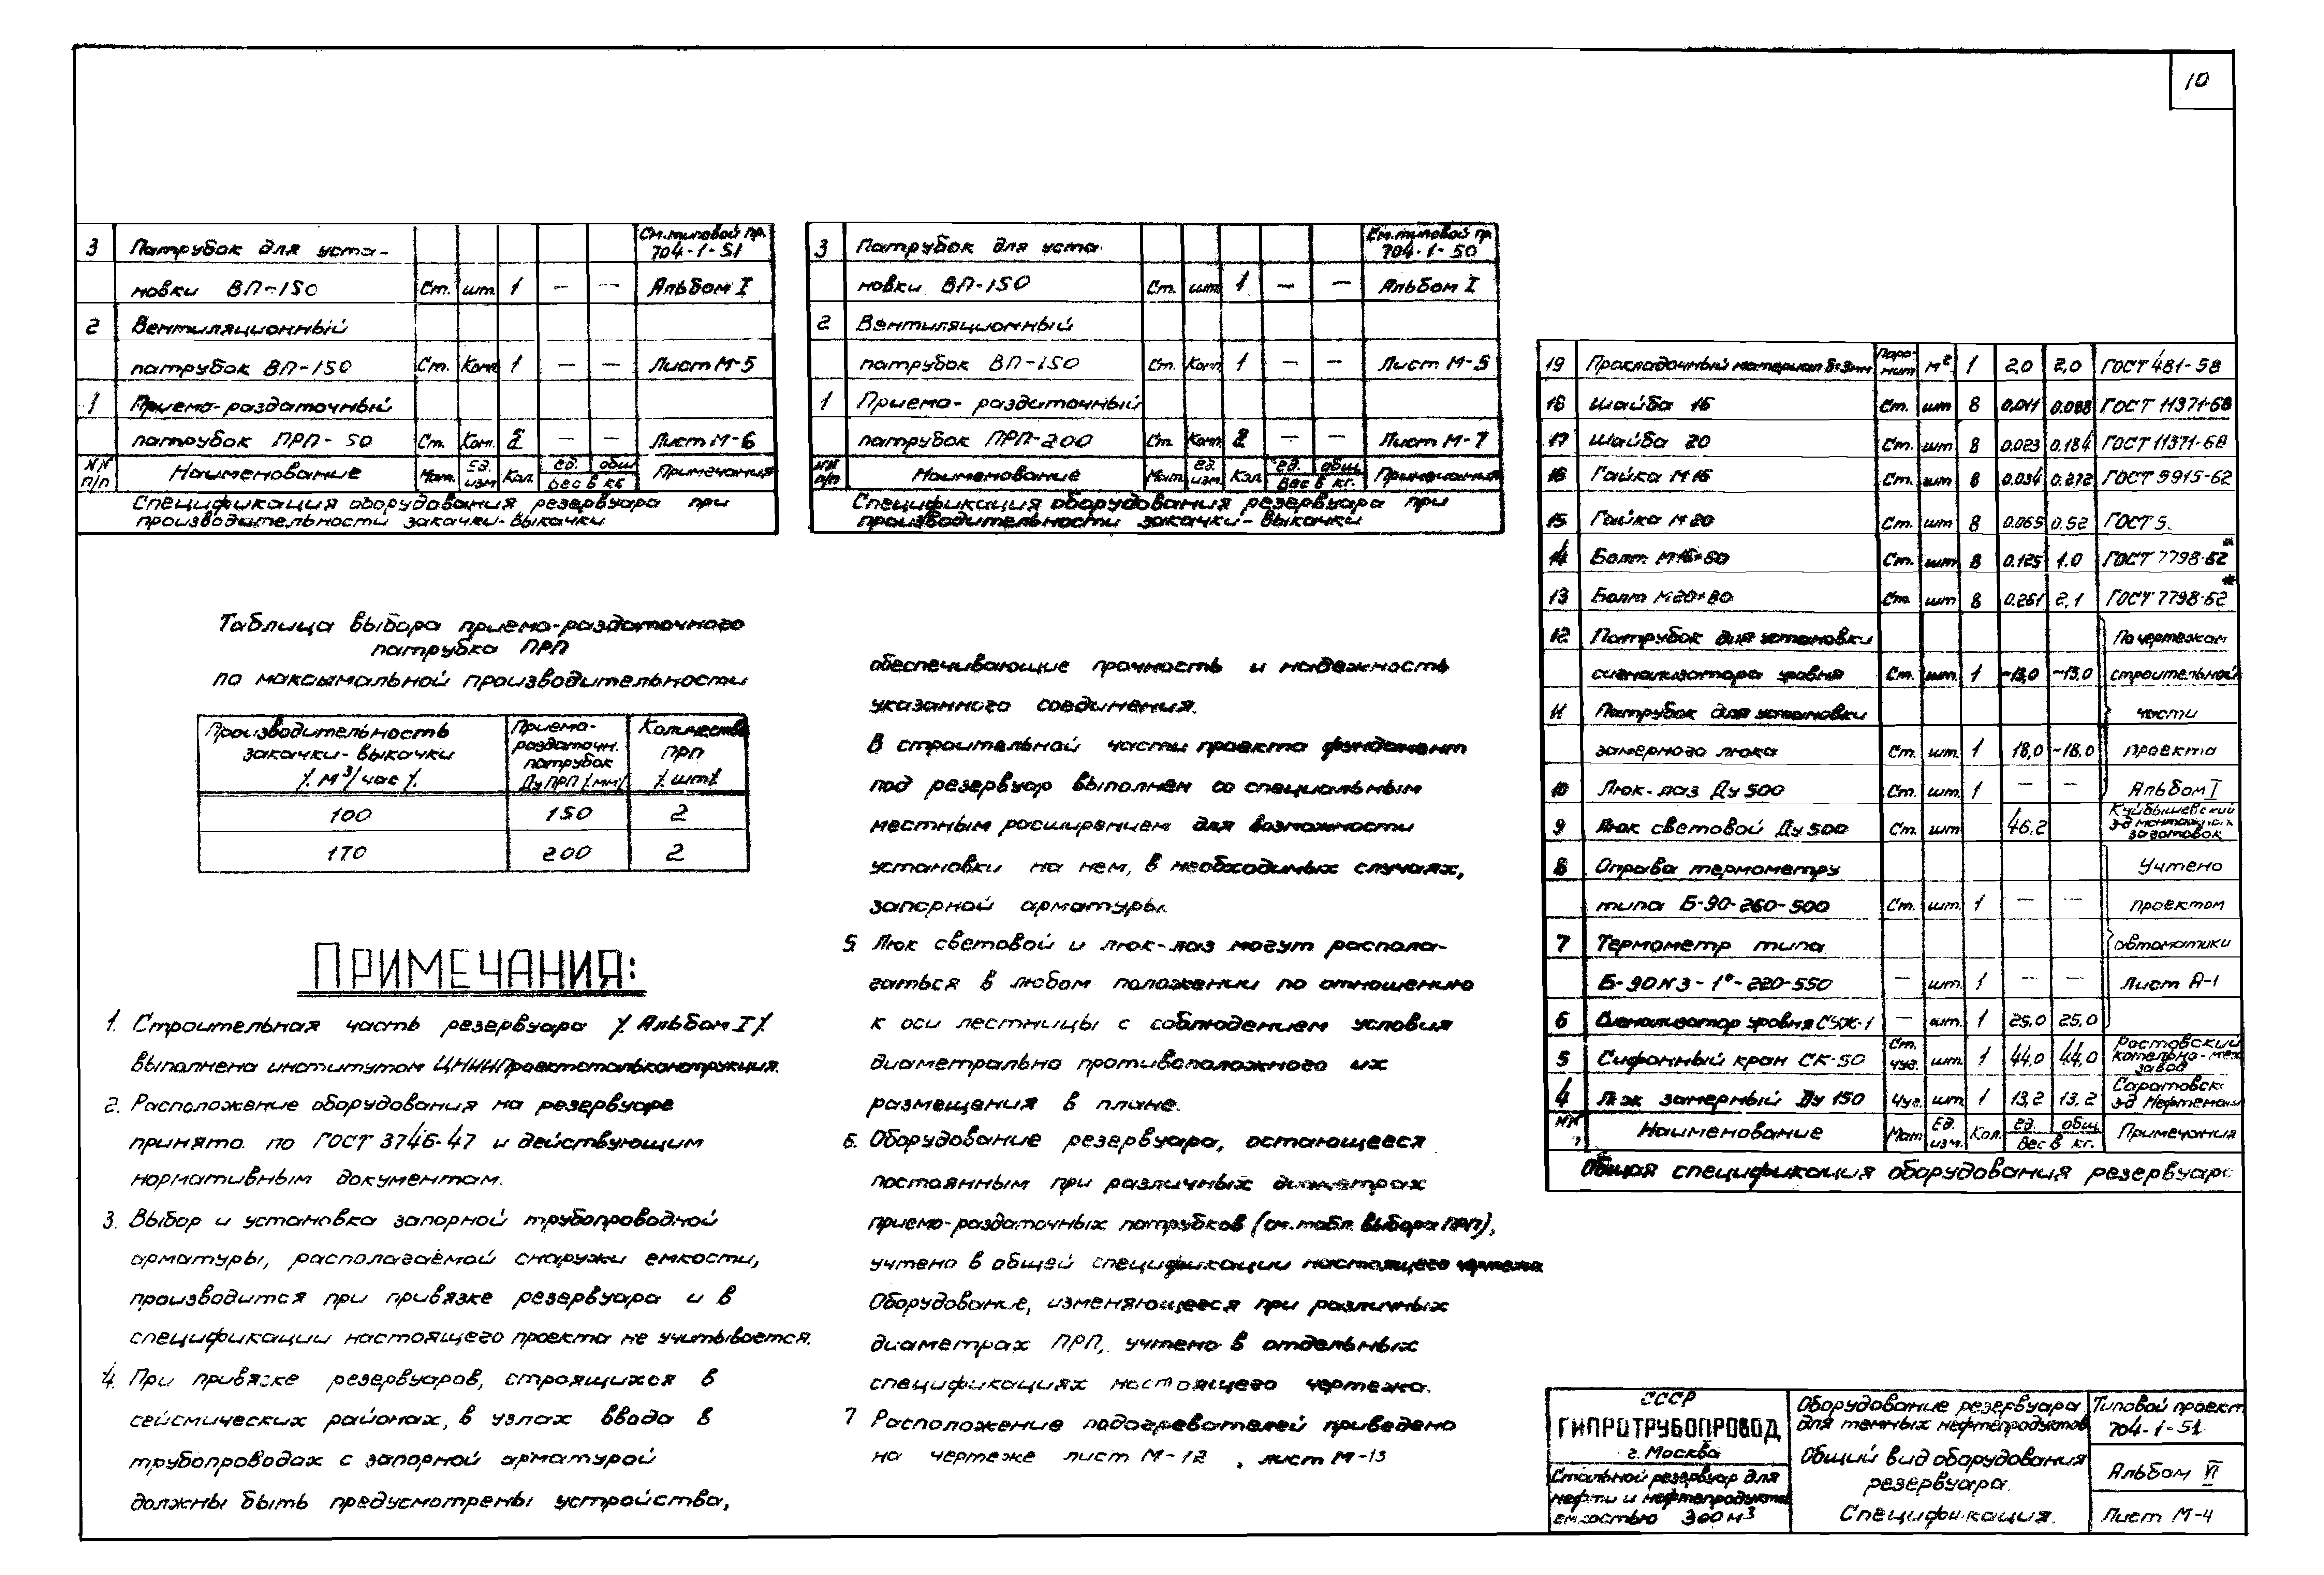 10
3 Патрубок для уста- См. типовой пр. 704-1-51
новки ВП-150 Ст. шт. 1 — — Альбом I
2 Вентиляционный
патрубок ВП-150 Ст. Комп 1 — — Лист М-5
1 Приемо-раздаточный
патрубок ПРП-50 Ст. Ком. 2 — — Лист М-6
NN п/п Наименование Мат. ед. изм Кол. ед. общ Вес в кг Примечания
Спецификация оборудования резервуара при
производительности закачки-выкачки
3 Патрубок для уста- См. типовой пр. 704-1-50
новки ВП-150 Ст. шт. 1 — — Альбом I
2 Вентиляционный
патрубок ВП-150 Ст. Комп 1 — — Лист М-5
1 Приемо-раздаточный
патрубок ПРП-200 Ст. Комп 2 — — Лист М-7
NN п/п Наименование Мат ед. изм. Кол ед. общ Вес в кг. Примечания
Спецификация оборудования резервуара при
производительности закачки-выкачки
Таблица выбора приемо-раздаточного
патрубка ПРП
по максимальной производительности
Производительность закачки-выкачки /. М³/час /. Приемо-раздаточн. патрубок Ду ПРП /.мм/ Количество ПРП /. шт/.
100 150 2
170 200 2
Примечания:
1. Строительная часть резервуара /. Альбом I /.
выполнена институтом ЦНИИПроектстальконструкция.
2. Расположение оборудования на резервуаре
принято по ГОСТ 3746-47 и действующим
нормативным документам.
3. Выбор и установка запорной трубопроводной
арматуры, располагаемой снаружи емкости,
производится при привязке резервуара и в
спецификации настоящего проекта не учитывается.
4. При привязке резервуаров, строящихся в
сейсмических районах, в узлах ввода в
трубопроводах с запорной арматурой
должны быть предусмотрены устройства,
обеспечивающие прочность и надежность
указанного соединения.
В строительной части проекта фундамент
под резервуар выполнен со специальным
местным расширением для возможности
установки на нем, в необходимых случаях,
запорной арматуры.
5 Люк световой и люк-лаз могут распола-
гаться в любом положении по отношению
к оси лестницы с соблюдением условия
диаметрально противоположного их
размещения в плане.
6. Оборудование резервуара, остающееся
постоянным при различных диаметрах
приемо-раздаточных патрубков (см. табл. выбора ПРП),
учтено в общей спецификации настоящего чертежа
Оборудование, изменяющееся при различных
диаметрах ПРП, учтено в отдельных
спецификациях настоящего чертежа.
7 Расположение подогревателей приведено
на чертеже лист М-12 , лист М-13
19 Прокладочный материал δ=3мм Паронит м² 1 2,0 2,0 ГОСТ 481-58
18 Шайба 16 Ст. шт 8 0,011 0.088 ГОСТ 11371-68
17 Шайба 20 Ст. шт 8 0.023 0.184 ГОСТ 11371-68
16 Гайка М16 Ст. шт 8 0.034 0.272 ГОСТ 5915-62
15 Гайка М20 Ст. шт 8 0.065 0.52 ГОСТ 5
14 Болт М16×60 Ст. шт 8 0.125 1.0 ГОСТ 7798-62*
13 Болт М20×80 Ст. шт 8 0.261 2,1 ГОСТ 7798-62*
12 Патрубок для установки По чертежам
сигнализатора уровня Ст. шт. 1 ~13,0 ~13,0 строительной
11 Патрубок для установки части
замерного люка Ст. шт. 1 18,0 ~18,0 проекта
10 Люк-лаз Ду 500 Ст. шт. 1 — — Альбом I
9 Люк световой Ду 500 Ст. шт 46,2 Куйбышевский з-д монтажных заготовок
8 Оправа термометру Учтено
типа Б-90-260-500 Ст. шт. 1 — — проектом
7 Термометр типа автоматики
Б-90 №3-1°-220-550 — шт. 1 — — Лист А-1
6 Сигнализатор уровня СУЖ-1 — шт. 1 25,0 25,0
5 Сифонный кран СК-50 Ст. чуг. шт. 1 44,0 44,0 Ростовский котельно-мех завод
4 Люк замерный Ду 150 Чуг. шт. 1 13,2 13,2 Саратовск з-д Нефтемаш
NN Наименование Мат Ед. изм. Кол. ед. общ. Вес в кг. Примечания
Общая спецификация оборудования резервуара
СССР
ГИПРОТРУБОПРОВОД
г. Москва
Стальной резервуар для
нефти и нефтепродуктов
емкостью 300 м³
Оборудование резервуара
для темных нефтепродуктов
Общий вид оборудования
резервуара.
Спецификация.
Типовой проект
704-1-51
Альбом VI
Лист М-4